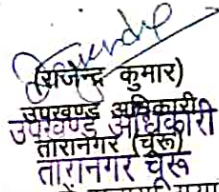 (राजेन्द्र कुमार)
उपखण्ड अधिकारी
उपखण्ड अधिकारी
तारानगर (चूरू)
तारानगर चूरू